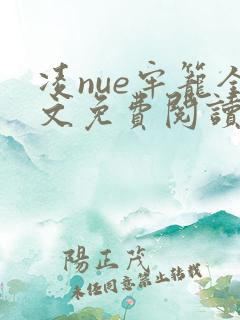 凌nue牢籠全
文免費閱讀
陽正茂
未经同意禁止转载